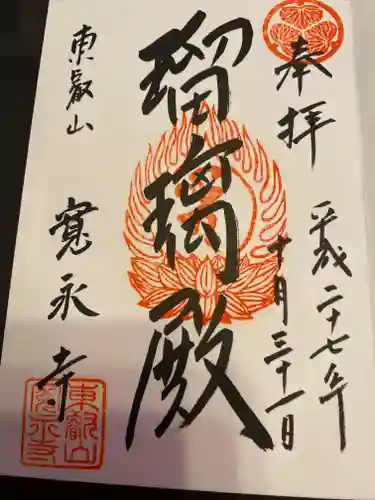 奉拝
平成二十七年
十月三十一日
瑠璃殿
東叡山
寛永寺
東叡山
寛永寺